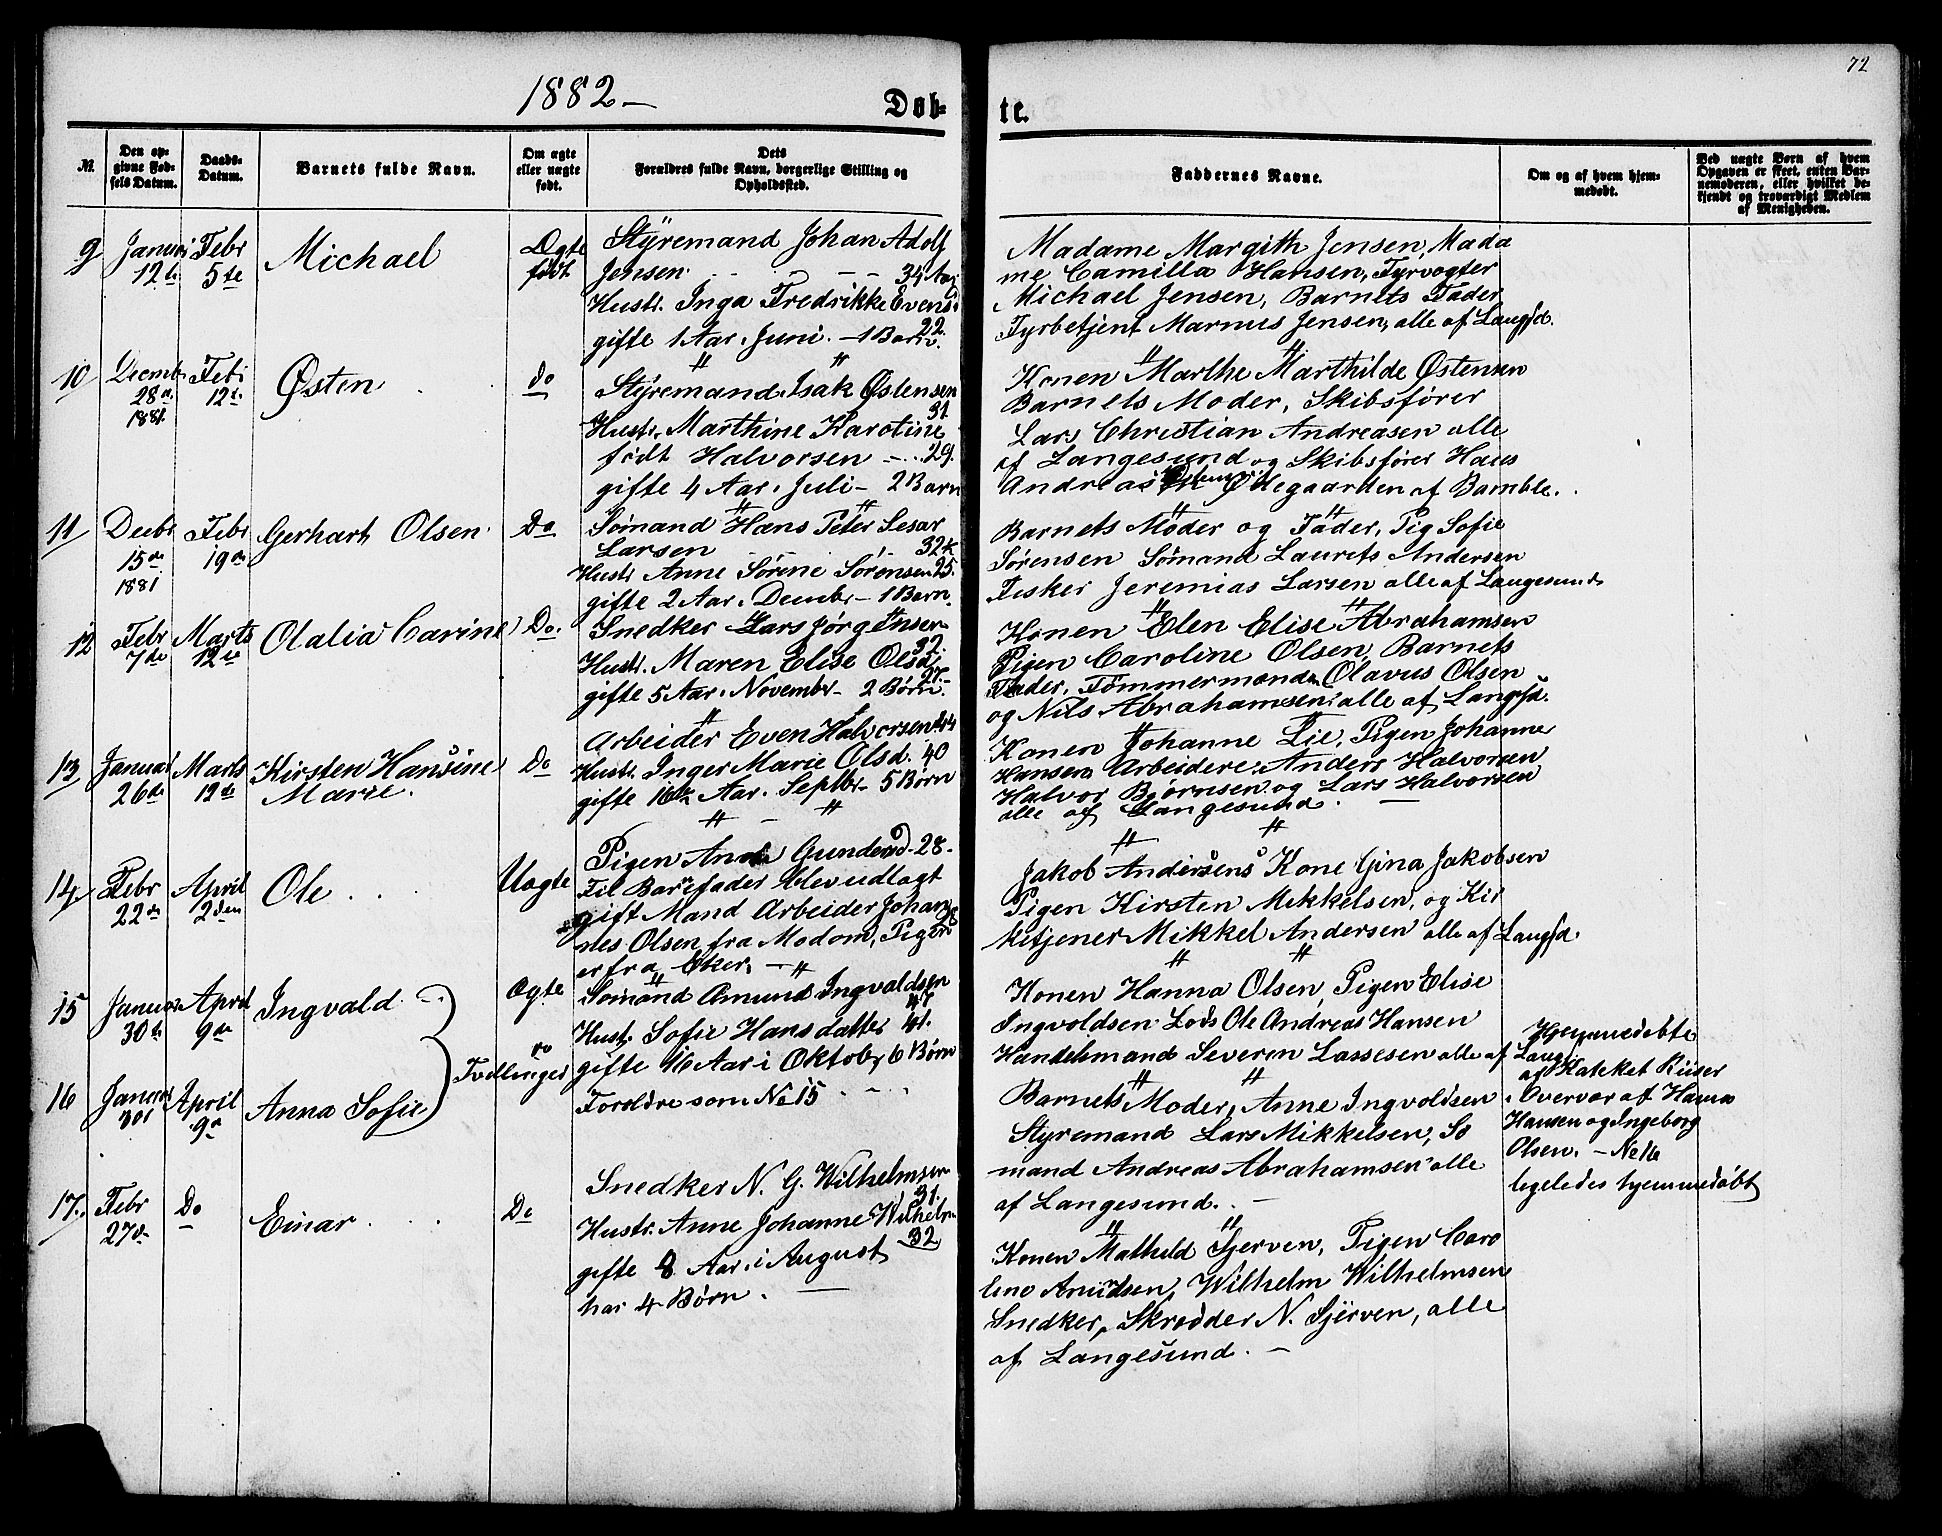 72
1882 —
Døb-
te.
№
Den op-
givne Fød-
sels Datum.
Daabs-
Datum.
Barnets fulde Navn.
Om ægte
eller uægte
født.
Dets
Forældres fulde Navn, borgerlige Stilling og
Opholdssted.
Faddernes Navne.
Om og af hvem hjem-
medøbt.
Ved uægte Børn af hvem
Opgaven er skeet, enten Bar-
nemoderen, eller hvilket be-
kjendt og troværdigt Medlem
af Menigheden.
9
Januar
12te
Febr
5te
Michael
Ægte
født
Styremand Johan Adolf
Jensen 34 Aar
Hustr. Inga Fredrikke Evens.
22.
gifte 1 Aar i Juni. — 1 Barn.
Madame Margith Jensen, Mada
me Camilla Hansen, Fyrvogter
Michael Jensen, Barnets Fader
Fyrbetjent Marnus Jensen, alle af Langsd.
10
Decmb
28de
1881.
Feb
12te
Østen
do
Styremand Isak Østensen
31.
Hustr. Marthine Karoline
født Halvorsen — 29.
gifte 4 Aar i Juli — 2 Barn
Konen Marthe Marthilde Østensen
Barnets Moder, Skibsfører
Lars Christian Andreasen alle
af Langesund og Skibsfører Hans
Andreas Ødegaarden af Bamble.
11
Decbr
15de
1881
Febr
19de
Gerhart Olsen
Do
Sømand Hans Peter Sesar
Larsen 32
Hustr Anne Sørine Sørensen 25.
gifte 2 Aar i Decembr — 1 Barn.
Barnets Moder og Fader, Pig Sofie
Sørensen Sømand Laurets Andersen
Fisker Jeremias Larsen alle af Langesund
12
Febr
7de
Marts
12te
Olalia Carine
Do.
Snedker Lars Jørgensen
32.
Hustr. Maren Elise Olsd.
27.
gifte 5 Aar i Novembr — 2 Børn.
Konen Elen Elise Abrahamsen
Pigen Caroline Olsen, Barnets
Fader, Tømmermænden Olavus Olsen
og Nils Abrahamsen alle af Langsd.
13
Januar
26de
Marts
12te
Kirsten Hansine
Marie.
Do
Arbeider Even Halvorsen 44
Hustr. Inger Marie Olsd. 40
gifte 16 Aar i Septbr — 5 Børn
Konen Johanne Lie, Pigen Johanne
Hansen Arbeidere Anders Halvorsen
Halvor Bjørnsen og Lars Halvorsen
alle af Langesund.
14.
Febr
22de
April
2den
Ole
Uægte
Pigen Anne Gundersd. 28.
Til Barnefader blev udlagt
gift Mand Arbeider Johan
nes Olsen fra Modom, Pigen
er fra Eker.
Jakob Andersens Kone Gina Jakobsen
Pigen Kirsten Mikkelsen, og Kir
ketjener Mikkel Andersen alle af Langsd.
15
Januar
30te
April
9de
Ingvald
Ægte
Sømand Amund Ingvaldsen
47
Hustr. Sofie Hansdatter 41.
gifte 16 Aar i Oktober 6 Børn
Konen Hanna Olsen, Pigen Elise
Ingvoldsen Lods Ole Andreas Hansen
Handelsmand Severin Lassesen alle af Langs.
Hjemmedøbte
af Kateket Riiser
i Overvær af Hanna
Hansen og Ingeborg
Olsen. — No 16
ligeledes hjemmedøbt
Tvillinger
16
Januar
30te
April
9de
Anna Sofie
do
Foreldre som No 15
Barnets Moder, Anne Ingvoldsen
Styremand Lars Mikkelsen, Sø
mand Andreas Abrahamsen alle
af Langesund. —
17.
Febr
27de
Do
Einar
Do
Snedker N. G. Wilhelmsen
31.
Hustr. Anne Johanne Wilhelm
32
gifte 8 Aar i August
har 4 Børn.
Konen Mathild Sjerven, Pigen Caro
line Amundsen, Wilhelm Wilhelmsen
Snedker, Skrædder N. Sjerven, alle
af Langesund. —